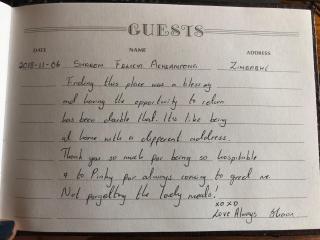 GUESTS
DATE NAME ADDRESS
2018-11-06 SHARON FELICIA ZIMBABWE
Finding this place was a blessing
and having the opportunity to return
has been double that. Its like being
at home with a different address.
Thank you so much for being so hospitable
& to Pinky for always coming to greet me
Not forgetting the lovely meals!
XOXO
Love Always Sharon